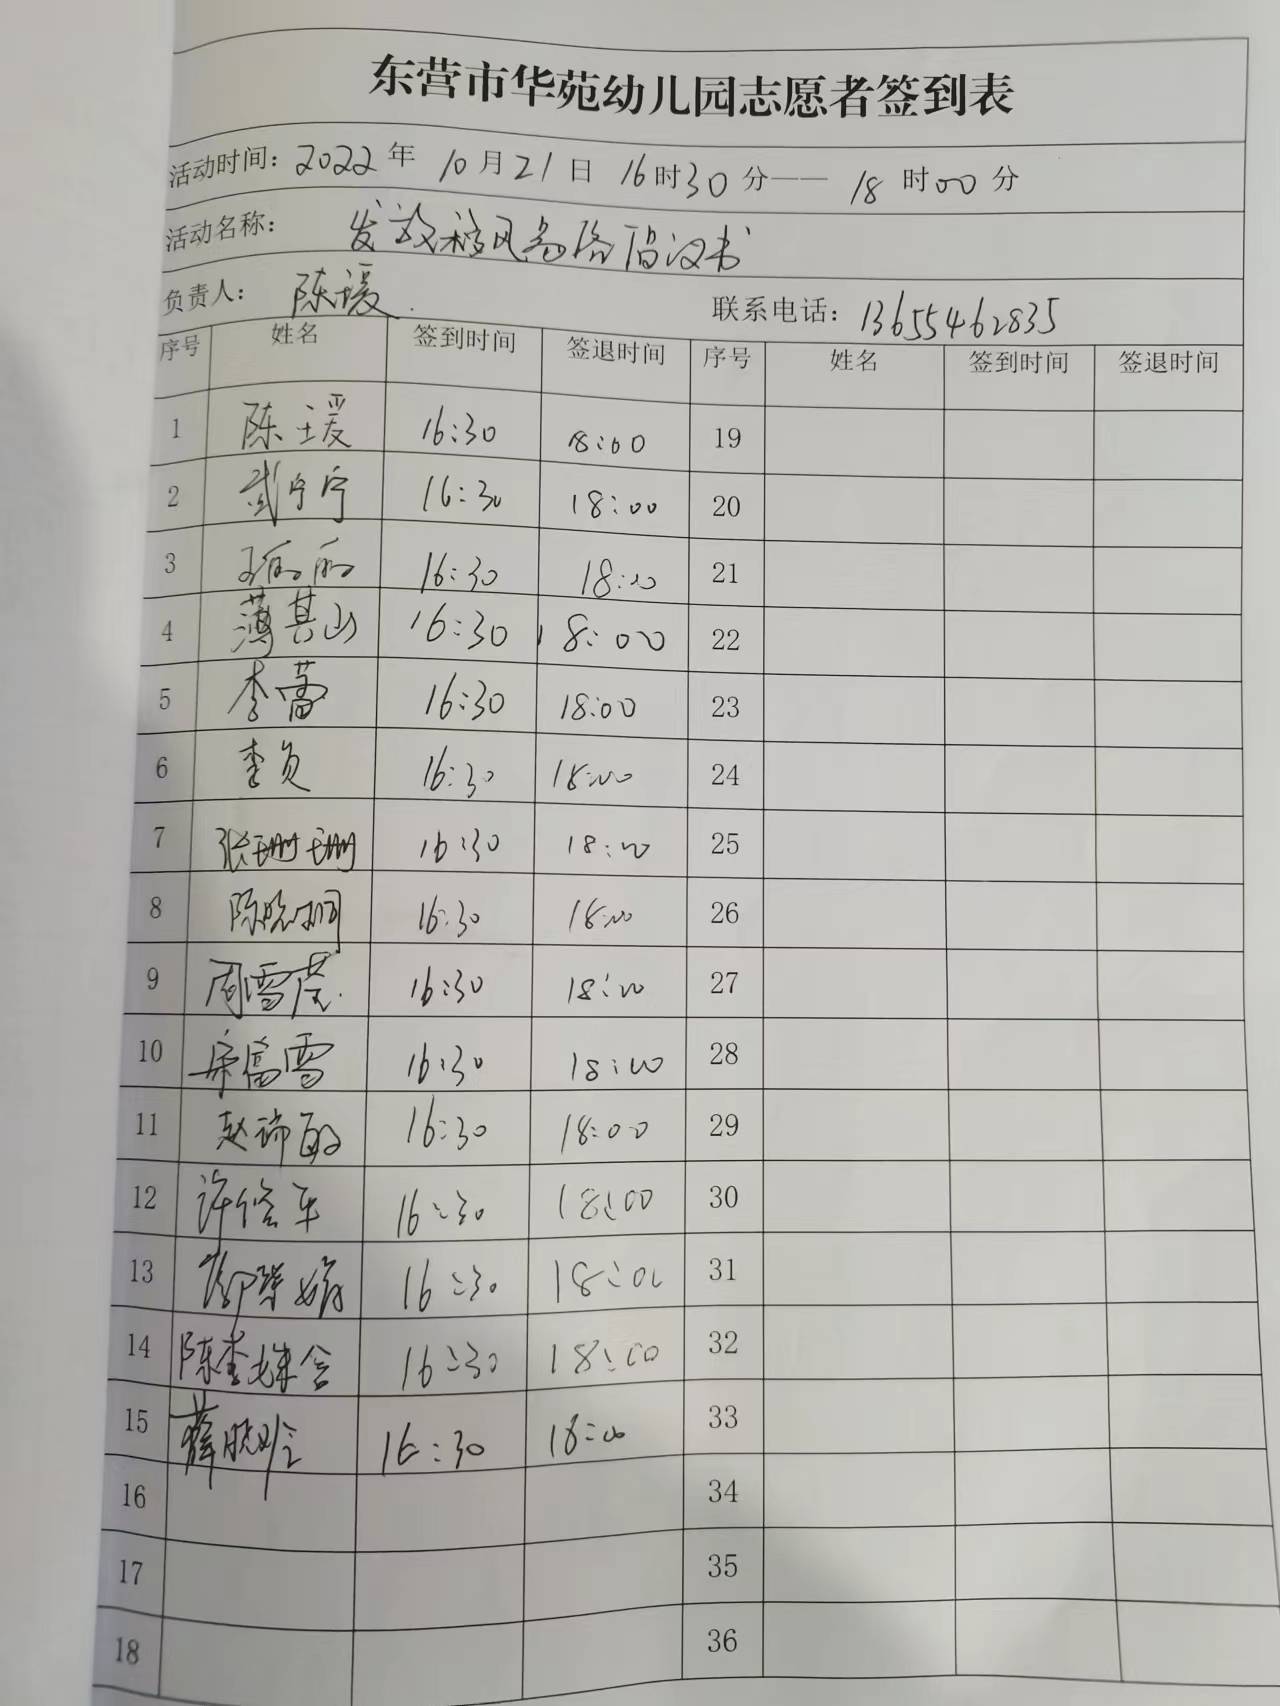 东营市华苑幼儿园志愿者签到表
活动时间：2022年 10月21日 16时30分—— 18时00分
活动名称： 发放移风易俗倡议书
负责人： 陈瑗 联系电话：13655462835
序号 姓名 签到时间 签退时间 序号 姓名 签到时间 签退时间
1 陈瑗 16:30 18:00 19
2 武宁宁 16:30 18:00 20
3 16:30 18:00 21
4 薄其山 16:30 18:00 22
5 李蕾 16:30 18:00 23
6 李贞 16:30 18:00 24
7 张珊珊 16:30 18:00 25
8 陈晓桐 16:30 18:00 26
9 周雪莹 16:30 18:00 27
10 宋富雪 16:30 18:00 28
11 赵瑞敏 16:30 18:00 29
12 许俊平 16:30 18:00 30
13 16:30 18:00 31
14 陈李 16:30 18:00 32
15 薛晓玲 16:30 18:00 33
16 34
17 35
18 36